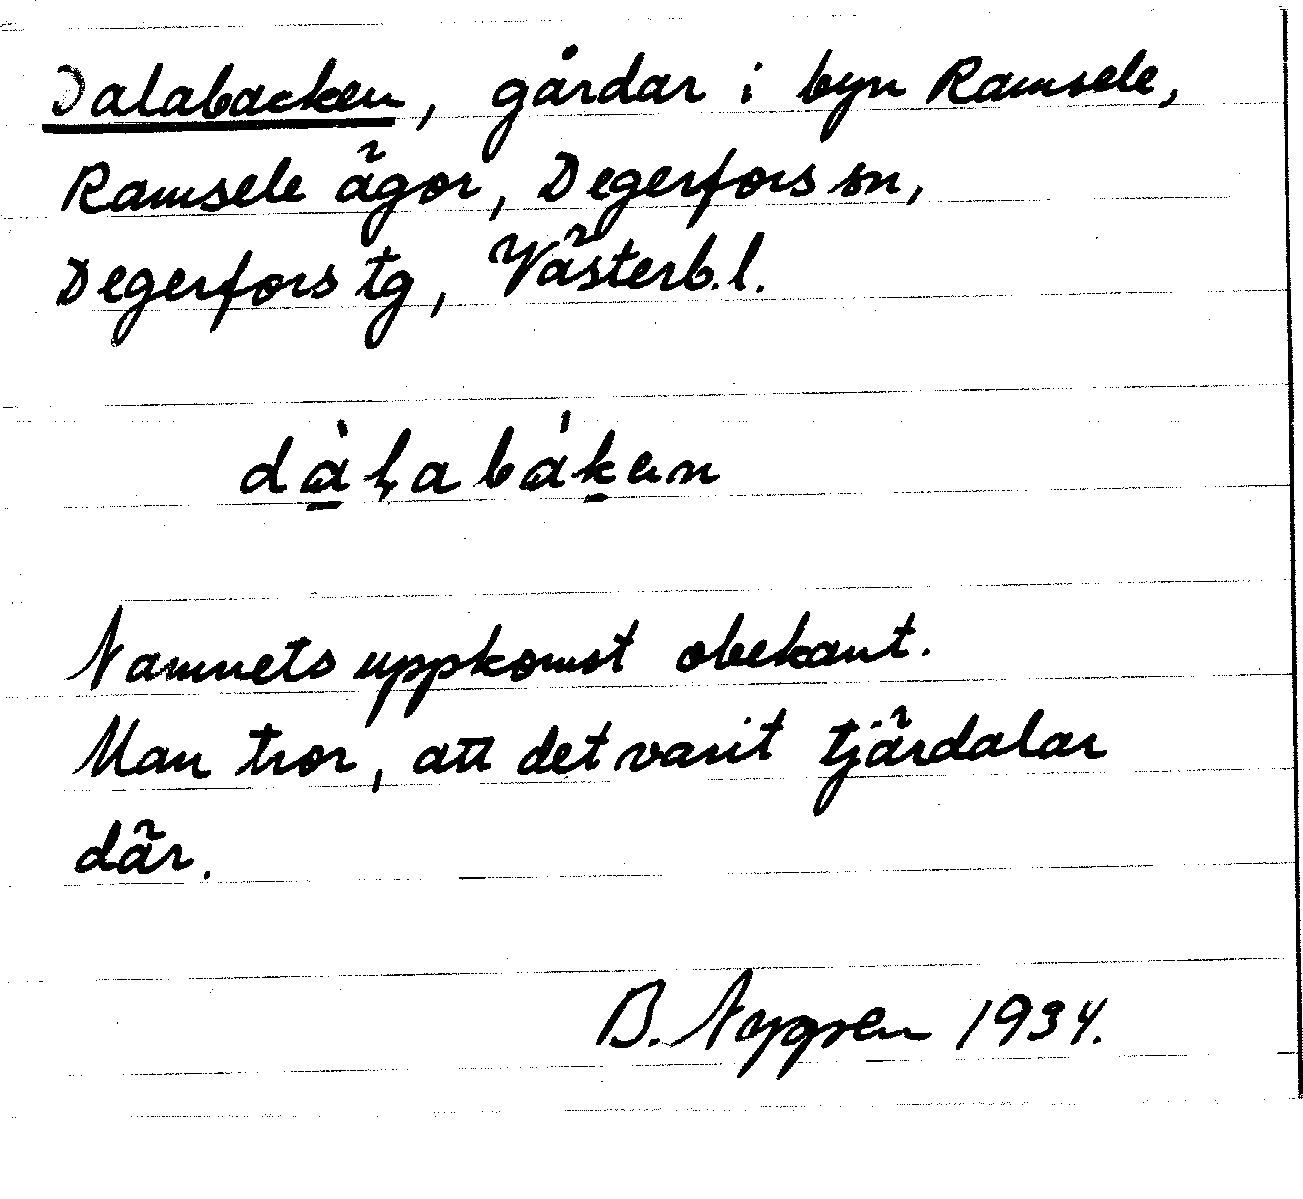 Dalabacken, gårdar i byn Ramsele,
Ramsele ägor, Degerfors sn,
Degerfors tg, Västerb.l.
dàḷabákɐn
Namnets uppkomst obekant.
Man tror, att det varit tjärdalar
där.
B. Nygren 1934.